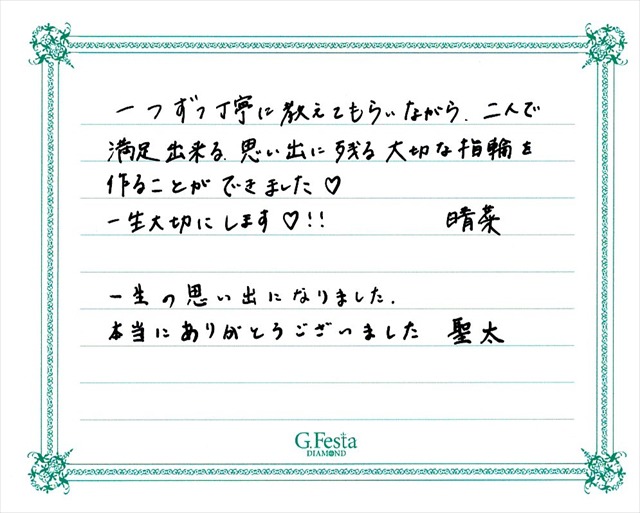 一つずつ丁寧に教えてもらいながら、二人で
満足出来る、思い出に残る大切な指輪を
作ることができました♡
一生大切にします♡!! 晴菜
一生の思い出になりました.
本当にありがとうございました 聖太
G.Festa
DIAMOND